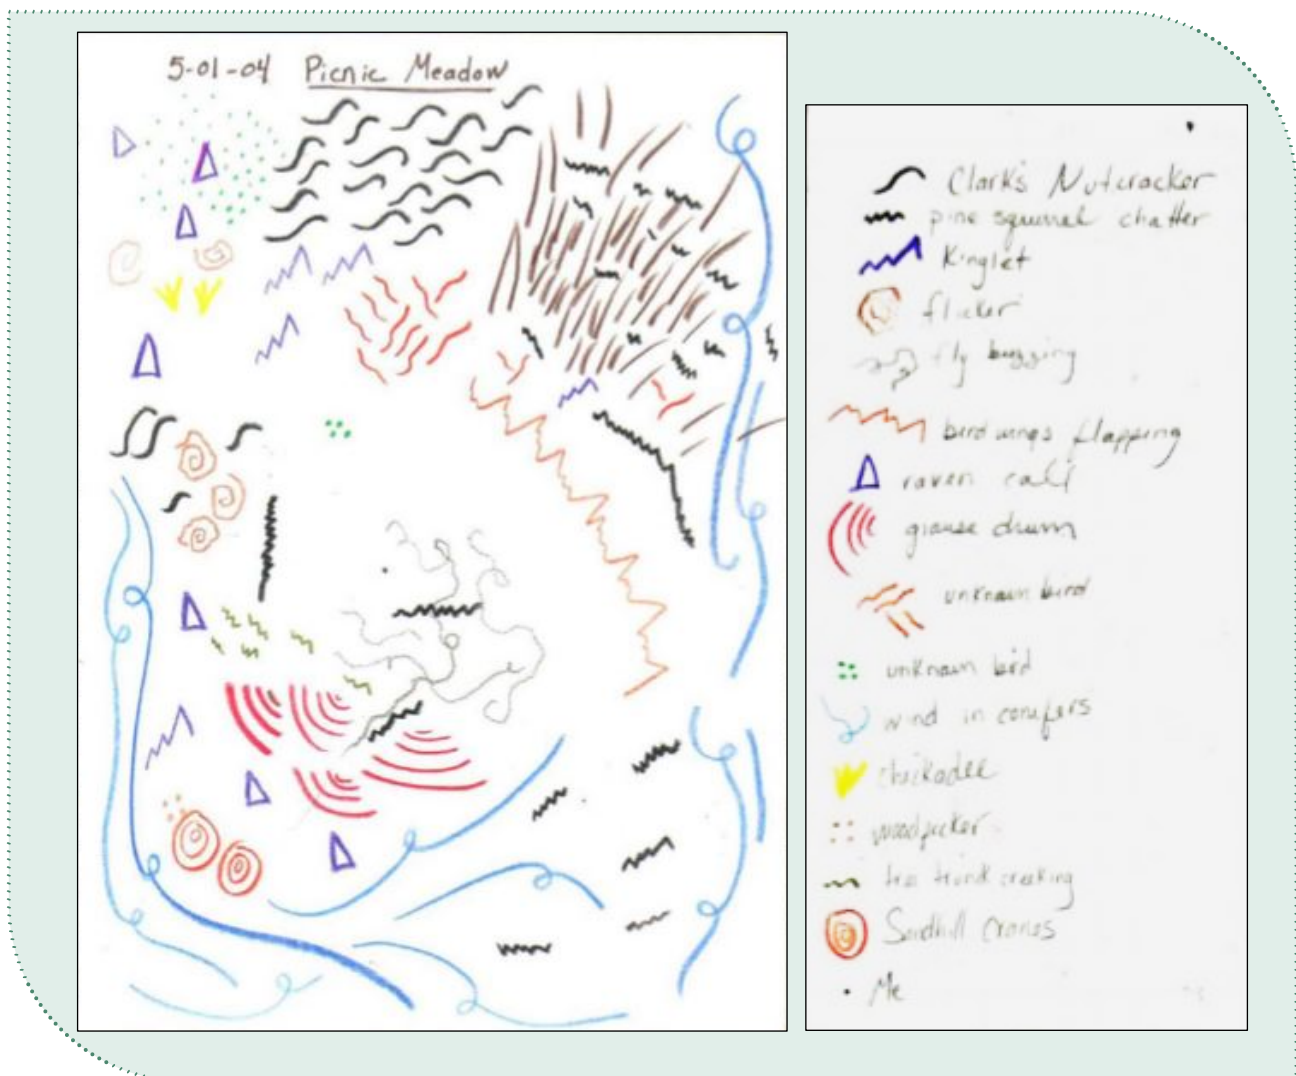 5-01-04 Picnic Meadow
Clark's Nutcracker
pine squirrel chatter
Kinglet
flicker
fly buzzing
bird wings flapping
raven call
grouse drum
unknown bird
unknown bird
wind in conifers
chickadee
woodpecker
tree trunk creaking
Sandhill Cranes
Me